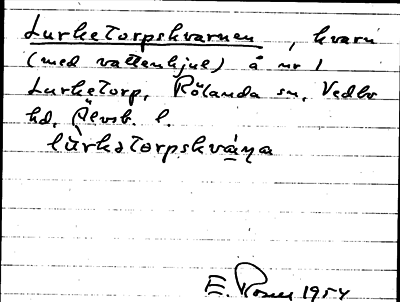 Lurketorpskvarnen, kvarn
(med vattenhjul) å nr 1
Lurketorp, Rölanda sn, Vedbo
hd, Älvsb. l.
lùrkətorpskván̥a
E. Rosen 1954